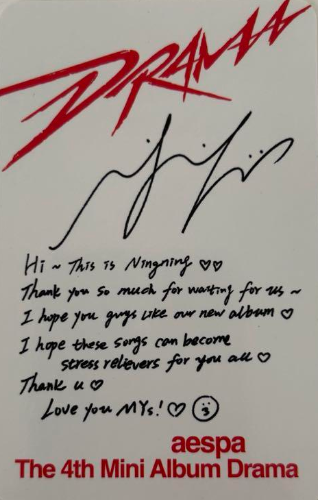 DRAMA
Hi ~ This is Ningning ♡♡
Thank you so much for waiting for us ~
I hope you guys like our new album ♡
I hope these songs can become
stress relievers for you all ♡
Thank u ♡
Love you MYs! ♡ ☺
aespa
The 4th Mini Album Drama